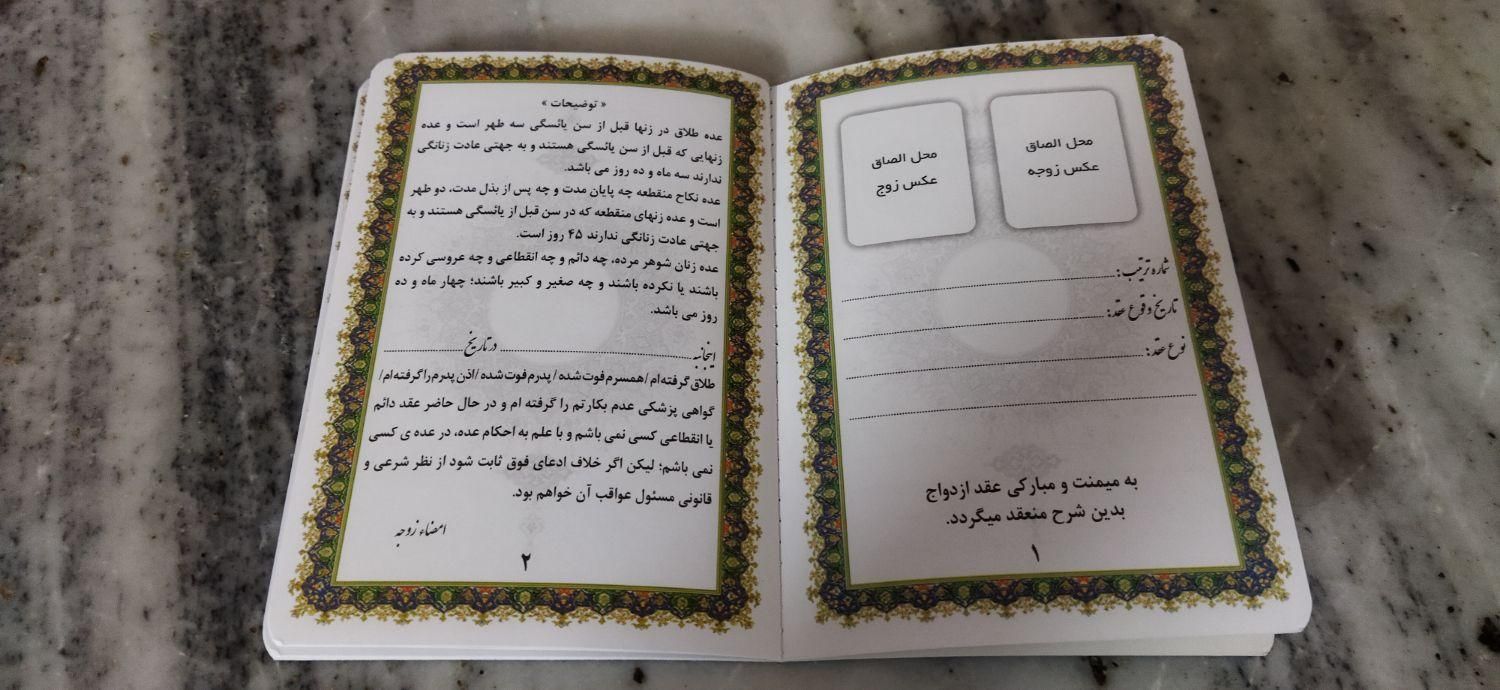 محل الصاق
عکس زوجه
محل الصاق
عکس زوج
شماره ترتیب:
تاریخ وقوع عقد:
نوع عقد:
به میمنت و مبارکی عقد ازدواج
بدین شرح منعقد میگردد.
۱
« توضیحات »
عده طلاق در زنها قبل از سن یائسگی سه طهر است و عده
زنهایی که قبل از سن یائسگی هستند و به جهتی عادت زنانگی
ندارند سه ماه و ده روز می باشد.
عده نکاح منقطعه چه پایان مدت و چه پس از بذل مدت، دو طهر
است و عده زنهای منقطعه که در سن قبل از یائسگی هستند و به
جهتی عادت زنانگی ندارند ۴۵ روز است.
عده زنان شوهر مرده، چه دائم و چه انقطاعی و چه عروسی کرده
باشند یا نکرده باشند و چه صغیر و کبیر باشند؛ چهار ماه و ده
روز می باشد.
اینجانبه در تاریخ
طلاق گرفته ام / همسرم فوت شده / پدرم فوت شده / اذن پدرم را گرفته ام /
گواهی پزشکی عدم بکارتم را گرفته ام و در حال حاضر عقد دائم
یا انقطاعی کسی نمی باشم و با علم به احکام عده، در عده ی کسی
نمی باشم؛ لیکن اگر خلاف ادعای فوق ثابت شود از نظر شرعی و
قانونی مسئول عواقب آن خواهم بود.
امضاء زوجه
۲